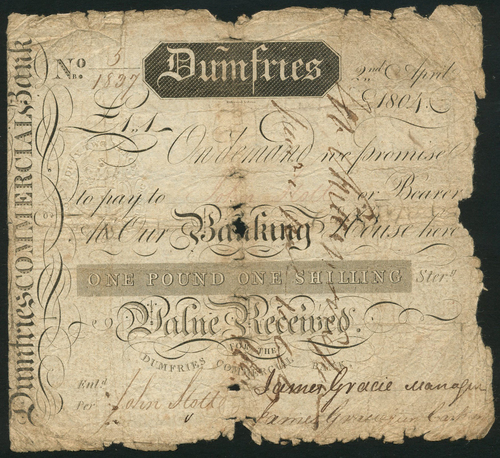 Dumfries COMMERCIAL Bank
Dumfries
No. 5/1897
2nd April
1804
£1..1
On demand we promise
to pay to or Bearer
At Our Banking House here
ONE POUND ONE SHILLING Sterg.
Value Received.
FOR THE
DUMFRIES COMMERCIAL BANK
Entd.
Per John Stott
James Gracie Manager
James Gracie